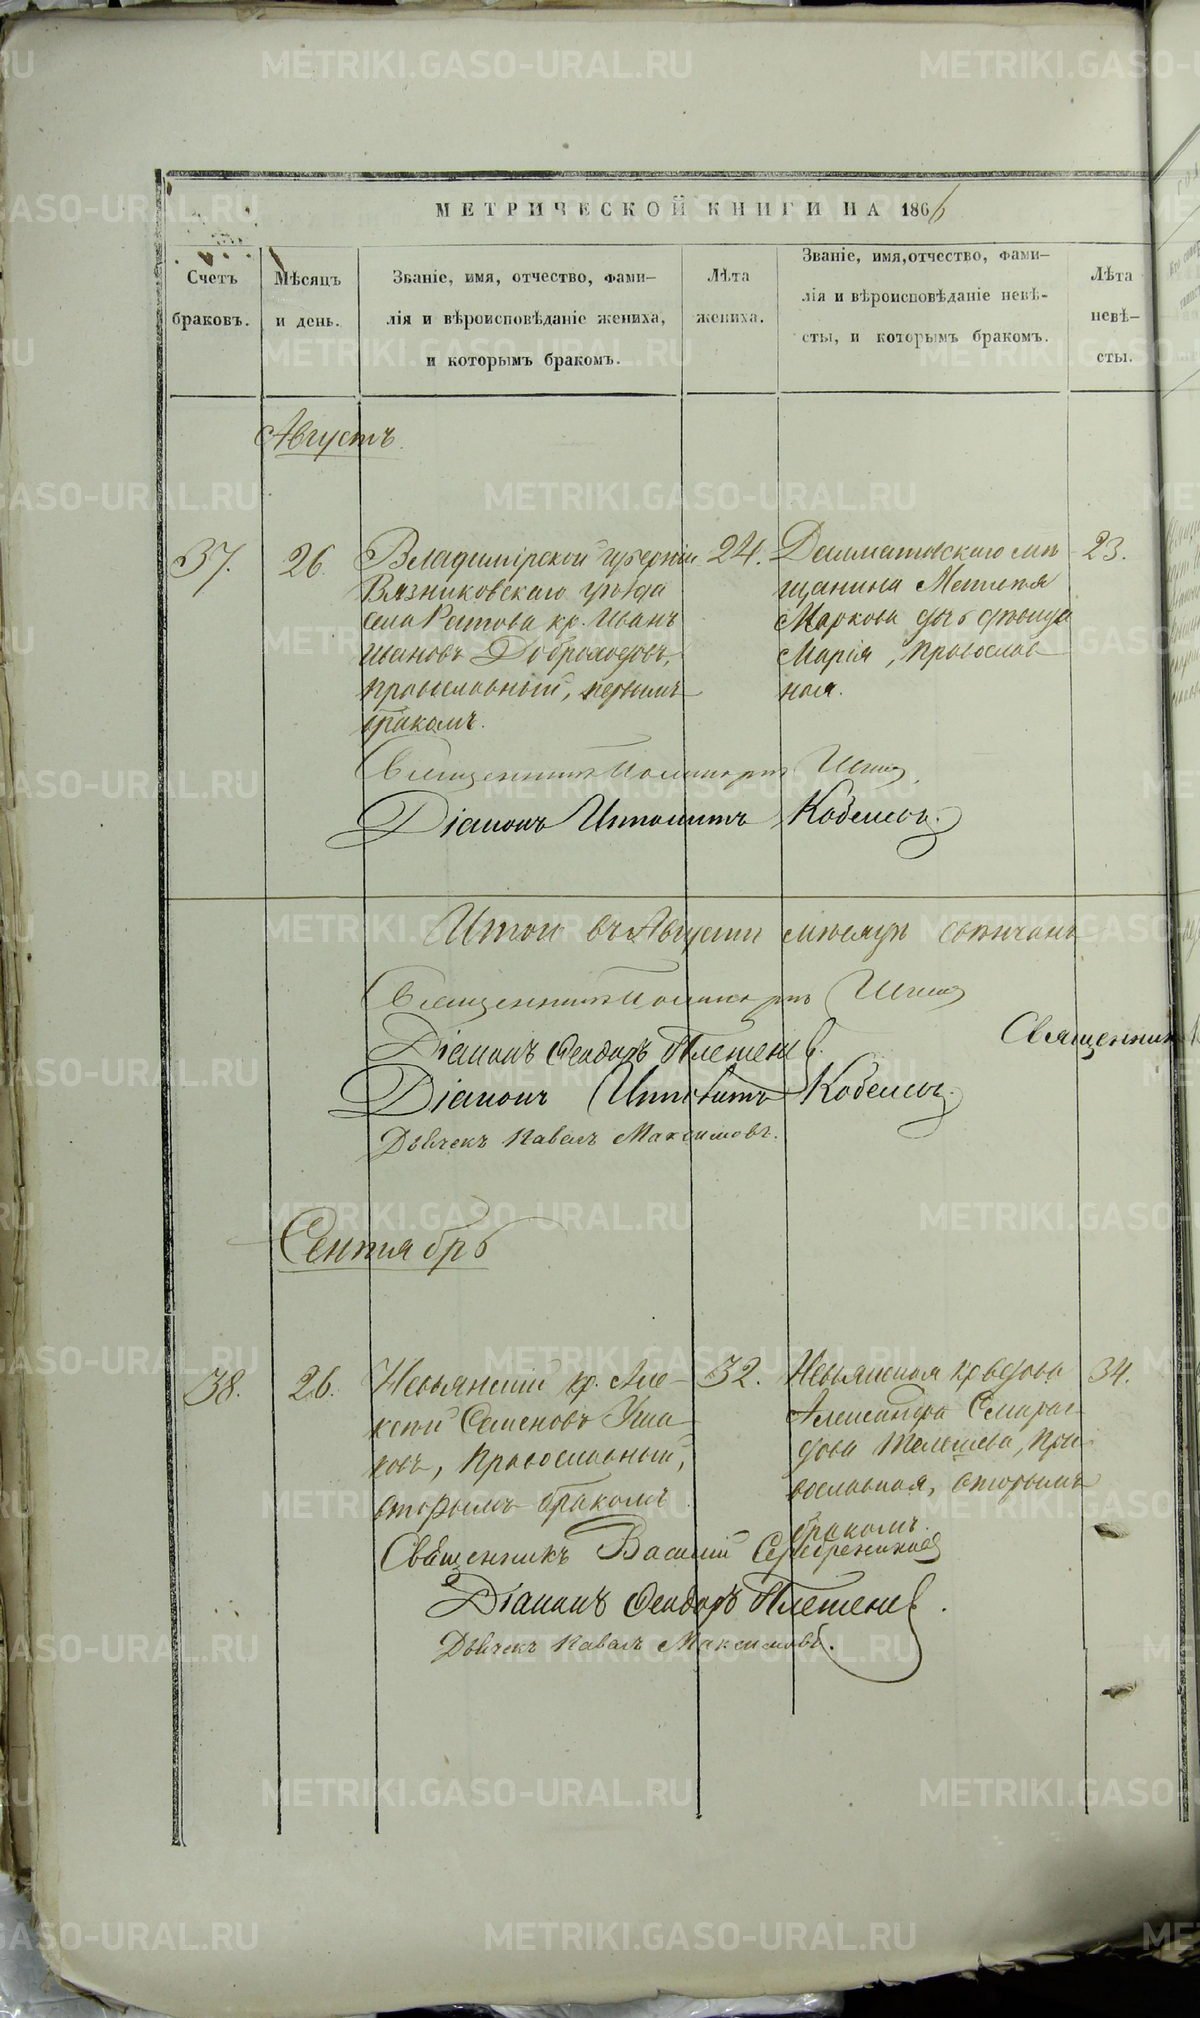 МЕТРИЧЕСКОЙ КНИГИ НА 1866
Счетъ браковъ.
Мѣсяцъ и день.
Званіе, имя, отчество, фами-
лія и вѣроисповѣданіе жениха,
и которымъ бракомъ.
Лѣта жениха.
Званіе, имя, отчество, фами-
лія и вѣроисповѣданіе невѣ-
сты, и которымъ бракомъ.
Лѣта невѣ-
сты.
Августъ
37. 26.
Владимірской губерніи
Вязниковскаго уѣзда
села кр. Иванъ
Ивановъ Доброходовъ,
православный, первымъ
бракомъ.
24.
Далматовскаго мѣ
щанина
Маркова дочь дѣвица
Марія, православ
ная.
23.
Священникъ
Діаконъ Ипполитъ
Итого въ Августѣ мѣсяцѣ свѣнчано
Священникъ
Діаконъ Феодоръ
Священник
Діаконъ Ипполитъ
Дьячекъ Павелъ Максимовъ.
Сентябрь
38. 26.
Невьянскій кр. Але
ксѣй Семеновъ Уша
ковъ, православный,
вторымъ бракомъ
32.
Невьянская кр. вдова
Александра Смараг
дова пра
вославная, вторымъ
бракомъ.
34.
Священникъ Василій Серебренниковъ
Діаконъ Феодоръ
Дьячекъ Павелъ Максимовъ.
METRIKI.GASO-URAL.RU